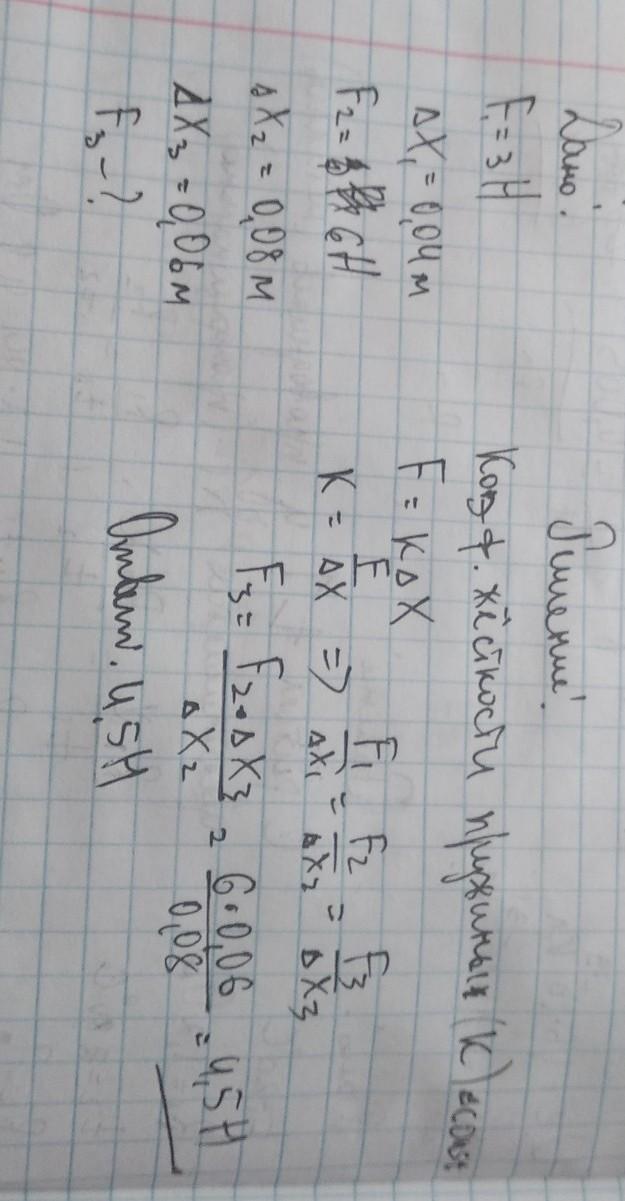 Дано:
F₁ = 3 Н
ΔX₁ = 0,04 м
F₂ = 6 Н
ΔX₂ = 0,08 м
ΔX₃ = 0,06 м
F₃ - ?
Решение:
Коэф. жёсткости пружины (К)
F = KΔX
K = F/ΔX => F₁/ΔX₁ = F₂/ΔX₂ = F₃/ΔX₃
F₃ = F₂·ΔX₃/ΔX₂ = 6·0,06/0,08 = 4,5 Н
Ответ: 4,5 Н